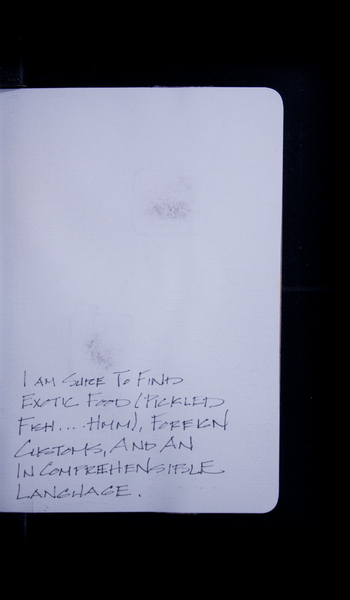 I AM SURE TO FIND
EXOTIC FOOD (PICKLED
FISH.... HMM), FOREIGN
CUSTOMS, AND AN
INCOMPREHENSIBLE
LANGUAGE.